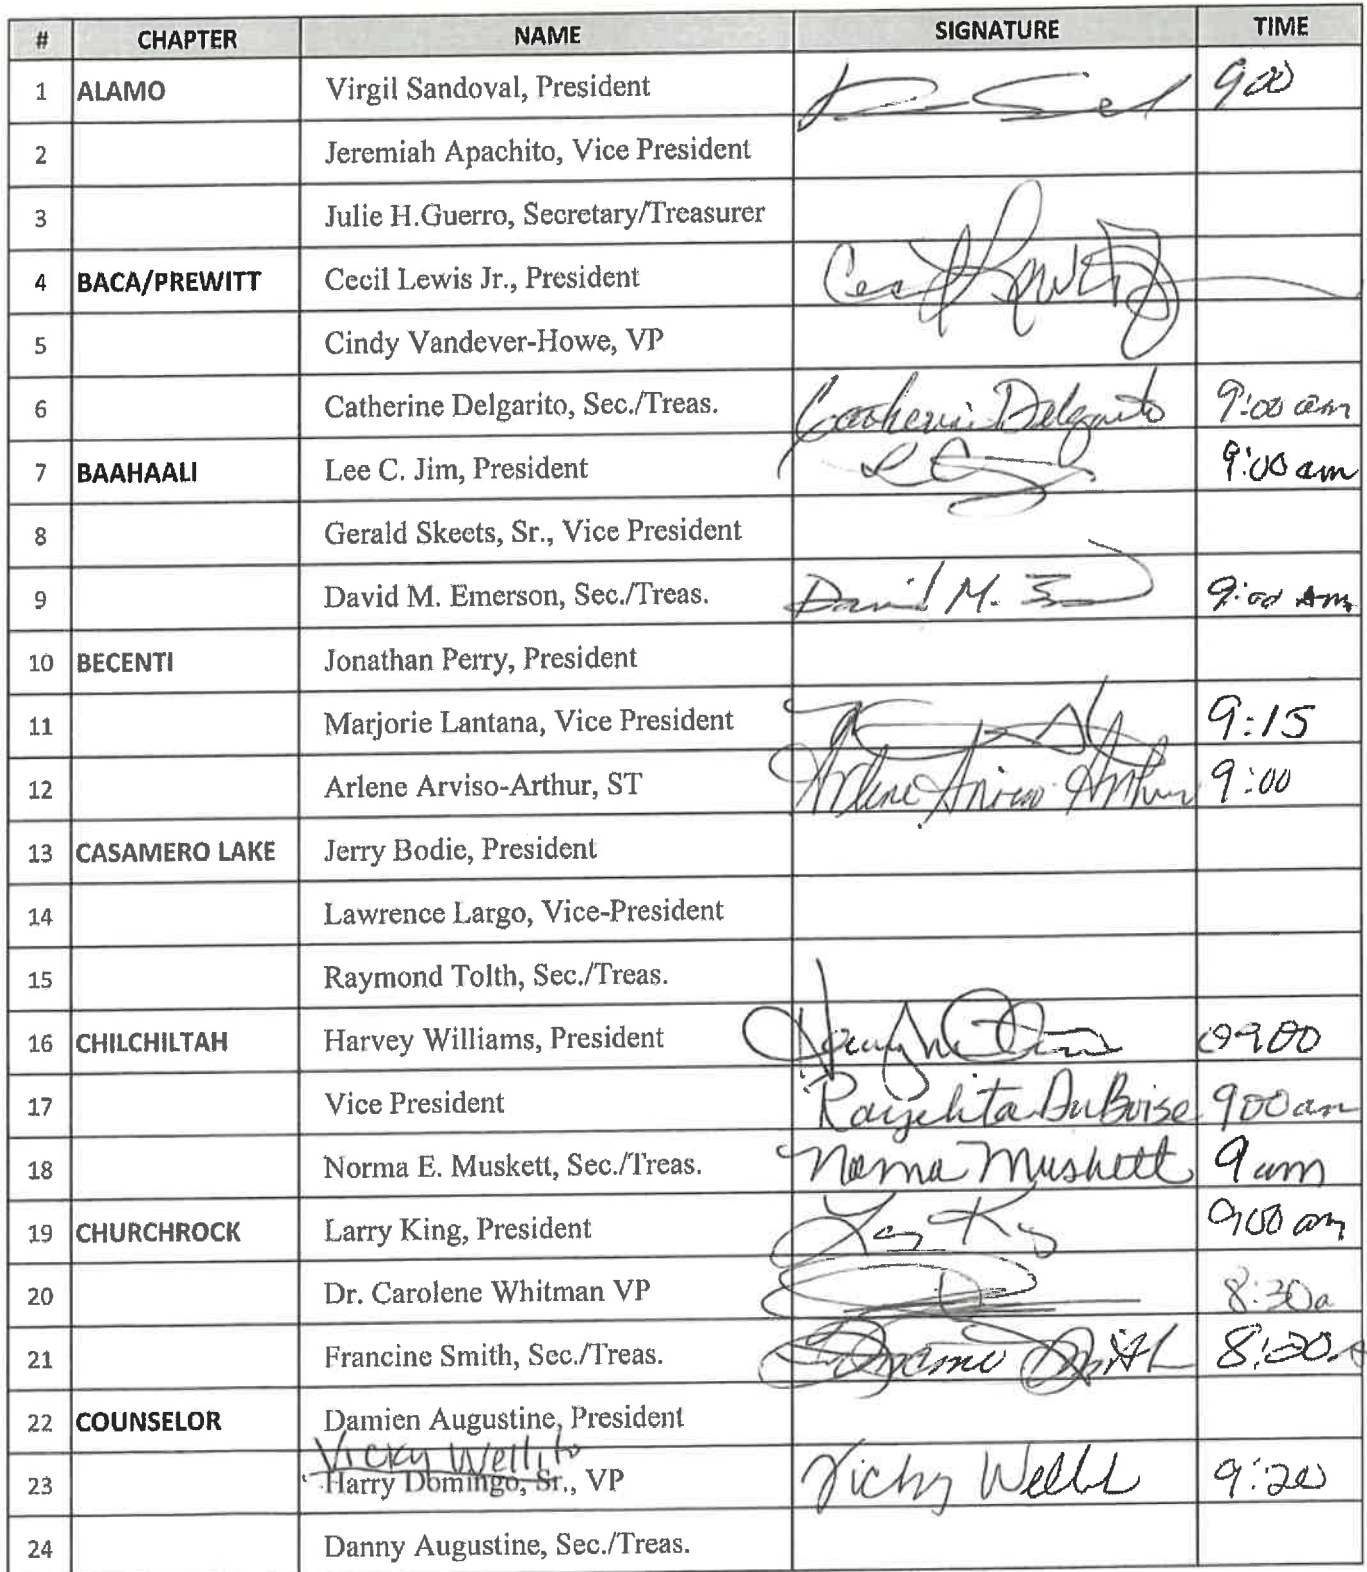 # CHAPTER NAME SIGNATURE TIME
1 ALAMO Virgil Sandoval, President 900
2 Jeremiah Apachito, Vice President
3 Julie H.Guerro, Secretary/Treasurer
4 BACA/PREWITT Cecil Lewis Jr., President
5 Cindy Vandever-Howe, VP
6 Catherine Delgarito, Sec./Treas. Catherine Delgarito 9:00 am
7 BAAHAALI Lee C. Jim, President 9:00 am
8 Gerald Skeets, Sr., Vice President
9 David M. Emerson, Sec./Treas. David M. 9:00 Am
10 BECENTI Jonathan Perry, President
11 Marjorie Lantana, Vice President 9:15
12 Arlene Arviso-Arthur, ST Arlene Arviso Arthur 9:00
13 CASAMERO LAKE Jerry Bodie, President
14 Lawrence Largo, Vice-President
15 Raymond Tolth, Sec./Treas.
16 CHILCHILTAH Harvey Williams, President 0900
17 Vice President DuBoise 900am
18 Norma E. Muskett, Sec./Treas. Norma Muskett 9am
19 CHURCHROCK Larry King, President 9:00 am
20 Dr. Carolene Whitman VP 8:30a
21 Francine Smith, Sec./Treas. Smith 8:20
22 COUNSELOR Damien Augustine, President
Vicky Wellito
23 Harry Domingo, Sr., VP Vicky 9:20
24 Danny Augustine, Sec./Treas.